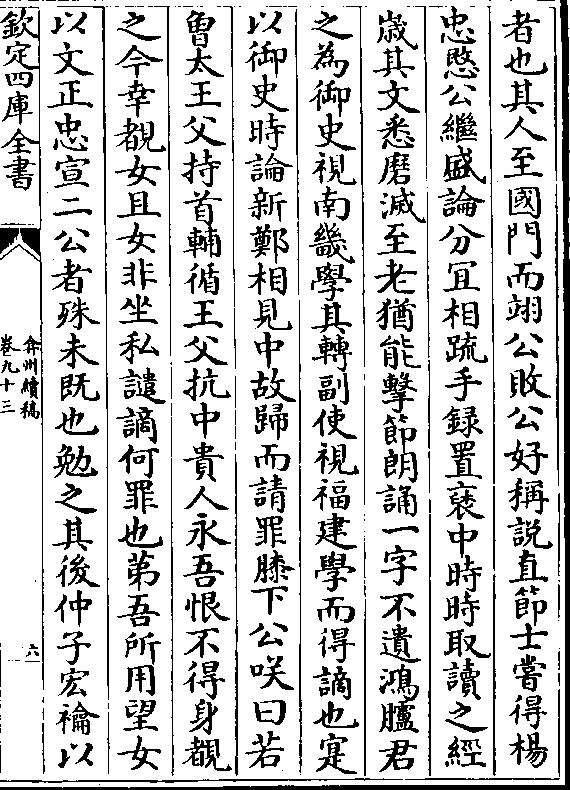 者也其人至國門而翊公敗公好稱説直節士嘗得楊
忠愍公繼盛論分宜相䟽手録置褏中時時取讀之經
嵗其文悉磨滅至老猶能擊節朗誦一字不遺鴻臚君
之為御史視南畿學其轉副使視福建學而得謫也寔
以御史時論新鄭相見中故歸而請罪膝下公咲曰若
曾太王父持首輔循王父抗中貴人永吾恨不得身覩
之今幸覩女且女非坐私譴謫何罪也苐吾所用望女
以文正忠宣二公者殊未既也勉之其後仲子宏禴以
欽定四庫全書
弇州續稿
卷九十三
六